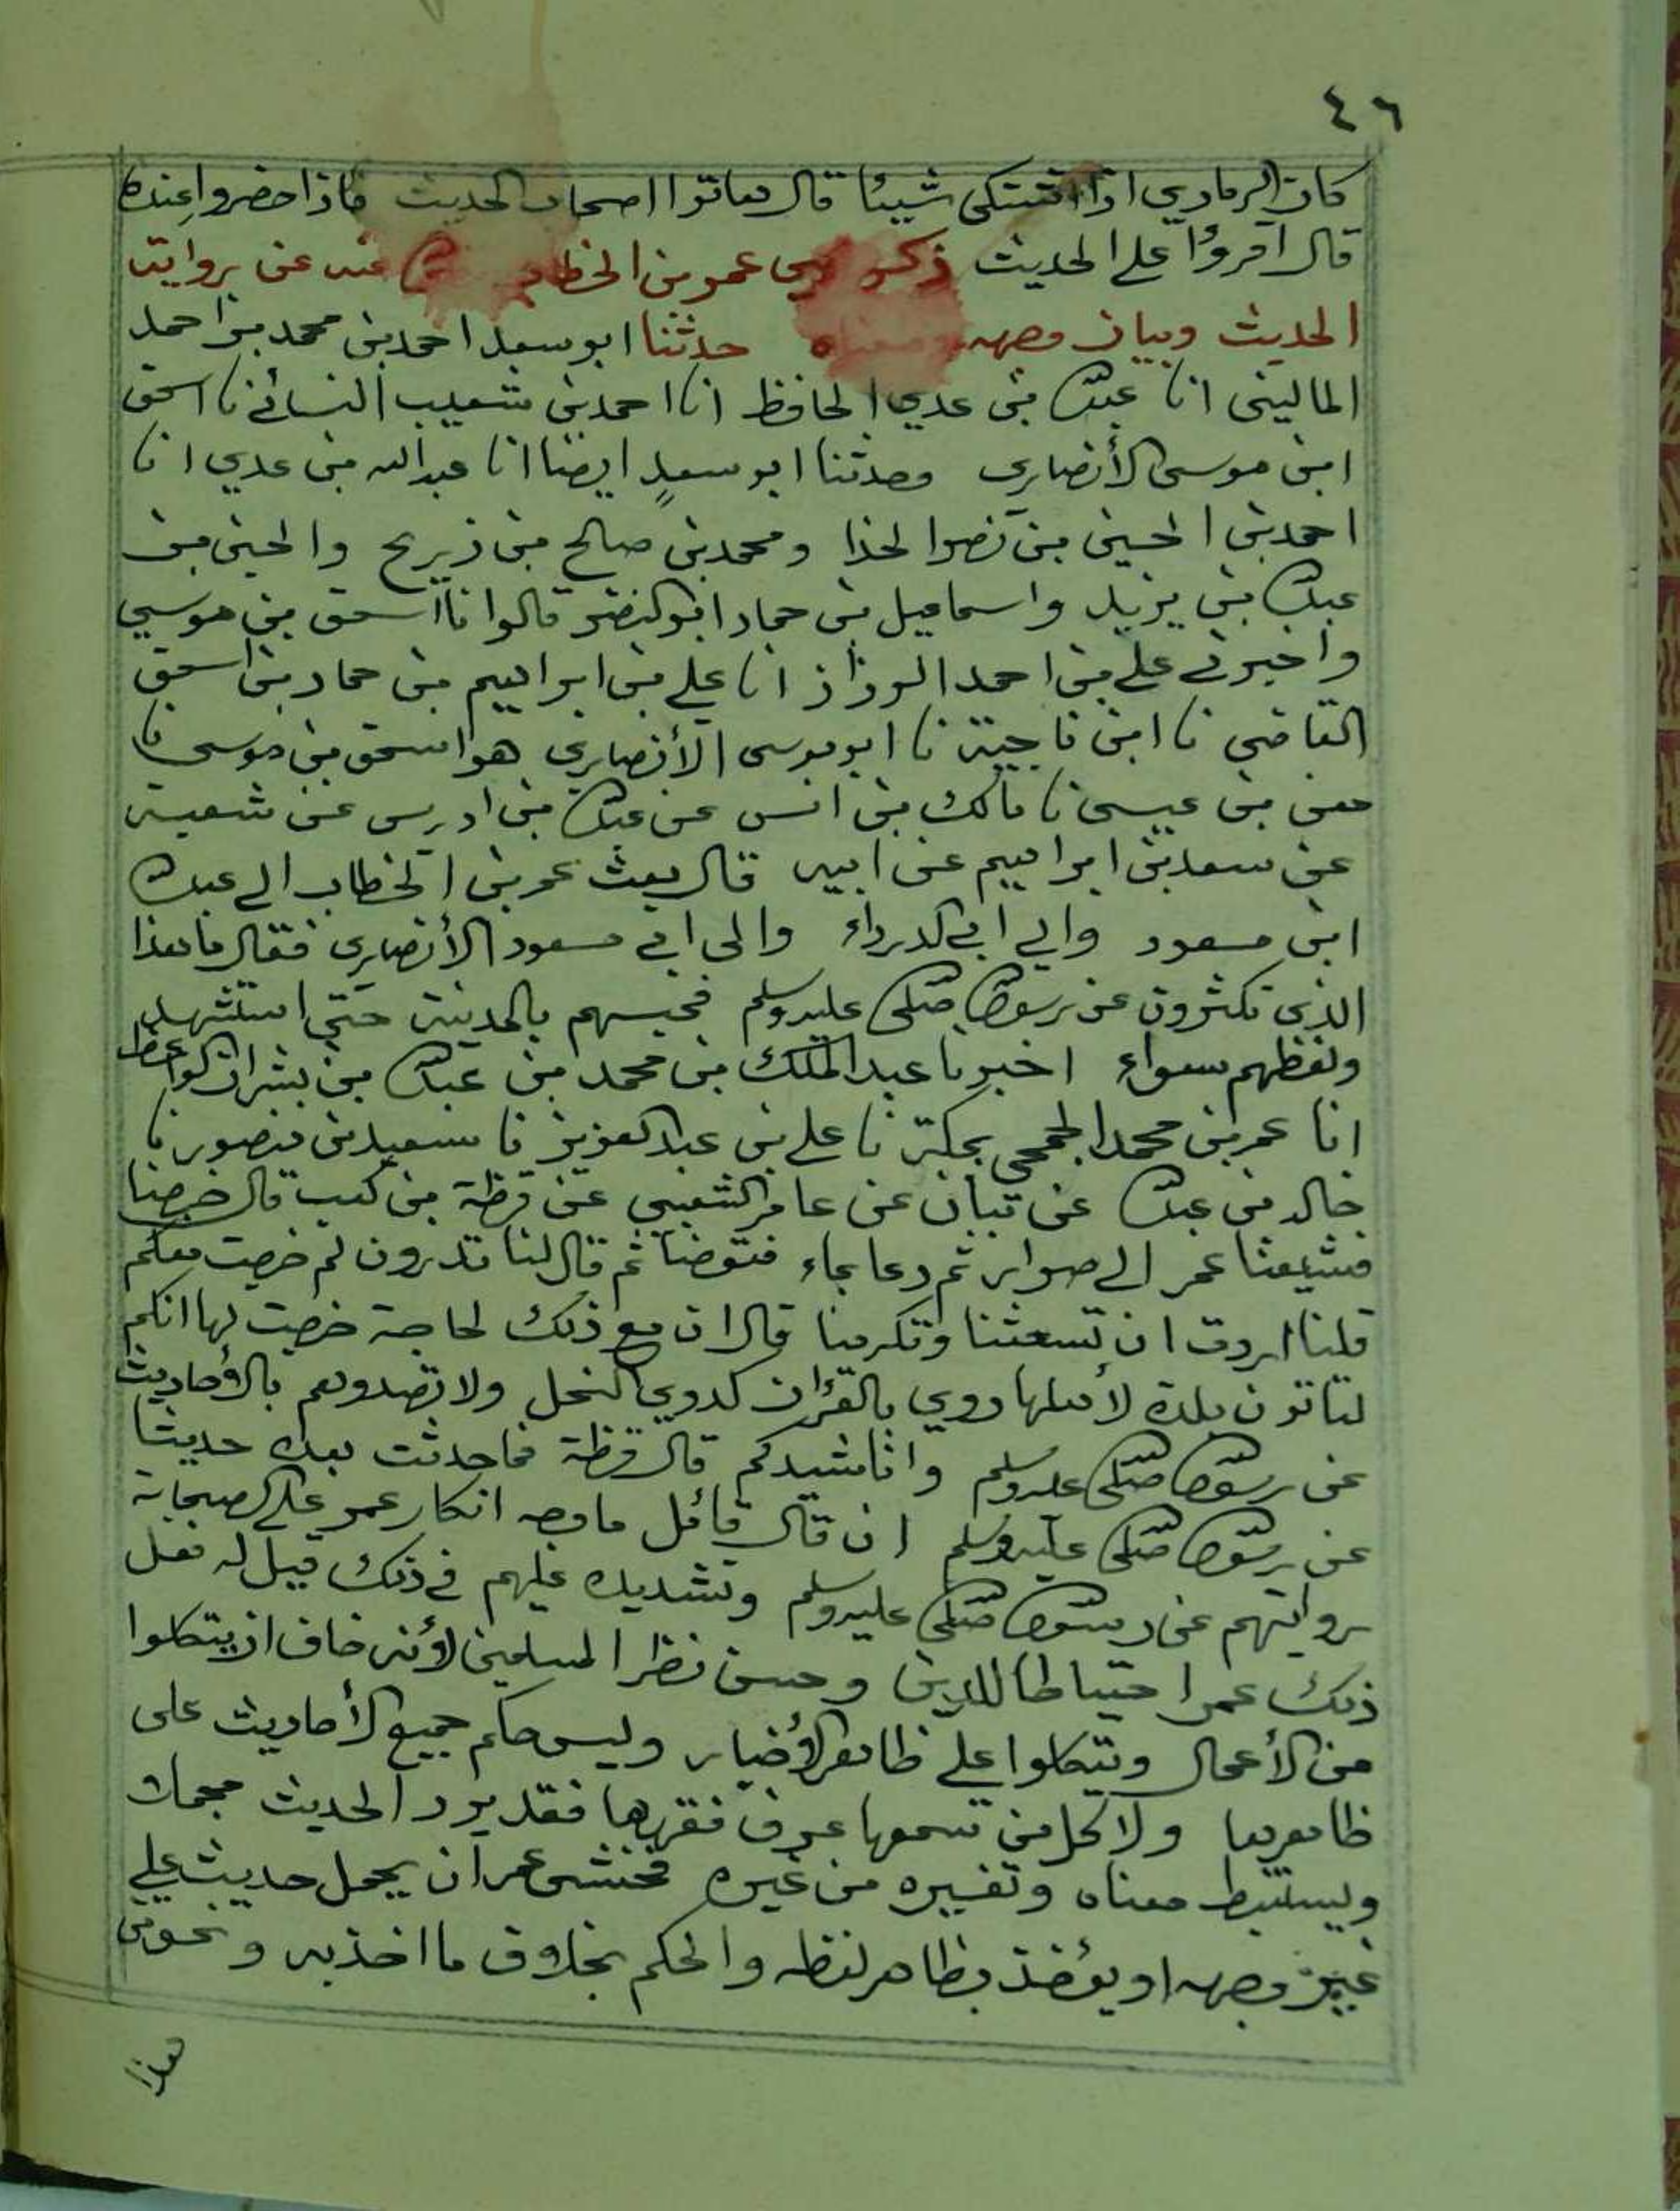 ٤٦
كان الرمادي اذا اشتكى شيئا قال هاتوا اصحاب الحديث فاذا حضروا عنده
قال اقرؤا على الحديث ذكر نهي عمر بن الخطاب عنه عن رواية
الحديث وبيان وجهه ومعناه حدثنا ابو سعد احمد بن محمد بن احمد
الماليني انا عبدالله بن عدي الحافظ انا احمد بن شعيب النسائي نا اسحق
ابن موسى الأنصاري وحدثنا ابو سعدٍ ايضا انا عبد الله بن عدي انا
احمد بن الحسين بن نصر الحذا ومحمد بن صالح بن ذريح والحسين بن
عبدالله بن يزيد واسماعيل بن حماد ابو النضر قالوا نا اسحق بن موسي
واخبرني علي بن احمد الرزاز انا علي بن ابراهيم بن حماد بن اسحق
القاضي نا ابن ناجية نا ابو موسى الأنصاري هو اسحق بن موسى نا
معن بن عيسى نا مالك بن انس عن عبدالله بن ادريس عن شعبة
عن سعد بن ابراهيم عن ابيه قال بعث عمر بن الخطاب الي عبدالله
ابن مسعود والي ابي الدرداء والى ابي مسعود الأنصاري فقال ما هذا
الذي تكثرون عن رسول الله صلى الله عليه وسلم فحبسهم بالمدينة حتي استشهد
ولفظهم سواء اخبرنا عبد الملك بن محمد بن عبدالله بن بشران الواعظ
انا عمر بن محمد الجمحي بمكة نا علي بن عبد العزيز نا سعيد بن منصور نا
خالد بن عبدالله عن بيان عن عامر الشعبي عن قرظة بن كعب قال خرجنا
فشيعنا عمر الي صرار ثم دعا بماء فتوضأ ثم قال لنا تدرون لم خرجت معكم
قلنا اردت ان تشعثنا وتكرمنا قال ان مع ذلك لحاجة خرجت لها انكم
لتاتون بلدة لأهلها دوي بالقرآن كدوي النحل ولا تصدوهم بالأحاديث
عن رسول الله صلى الله عليه وسلم وانا شريككم قال قرظة فما حدثت بعده حديثا
عن رسول الله صلى الله عليه وسلم ان قال قائل ما وجه انكار عمر على الصحابة
روايتهم عن رسول الله صلى الله عليه وسلم وتشديده عليهم في ذلك قيل له فعل
ذلك عمر احتياطا للدين وحسن نظر المسلمين لأنه خاف ان يتكلوا
عن الأعمال ويتكلوا علي ظاهر الأخبار وليس حكم جميع الأحاديث على
ظاهرها ولا كل من سمعها عرف فقهها فقد يرد الحديث مجملا
ويستنبط معناه وتفسيره من غيره فخشى عمر ان يحمل حديث علي
غير وجهه او يؤخذ بظاهر لفظه والحكم بخلاف ما اخذ به ونحو من
هذا